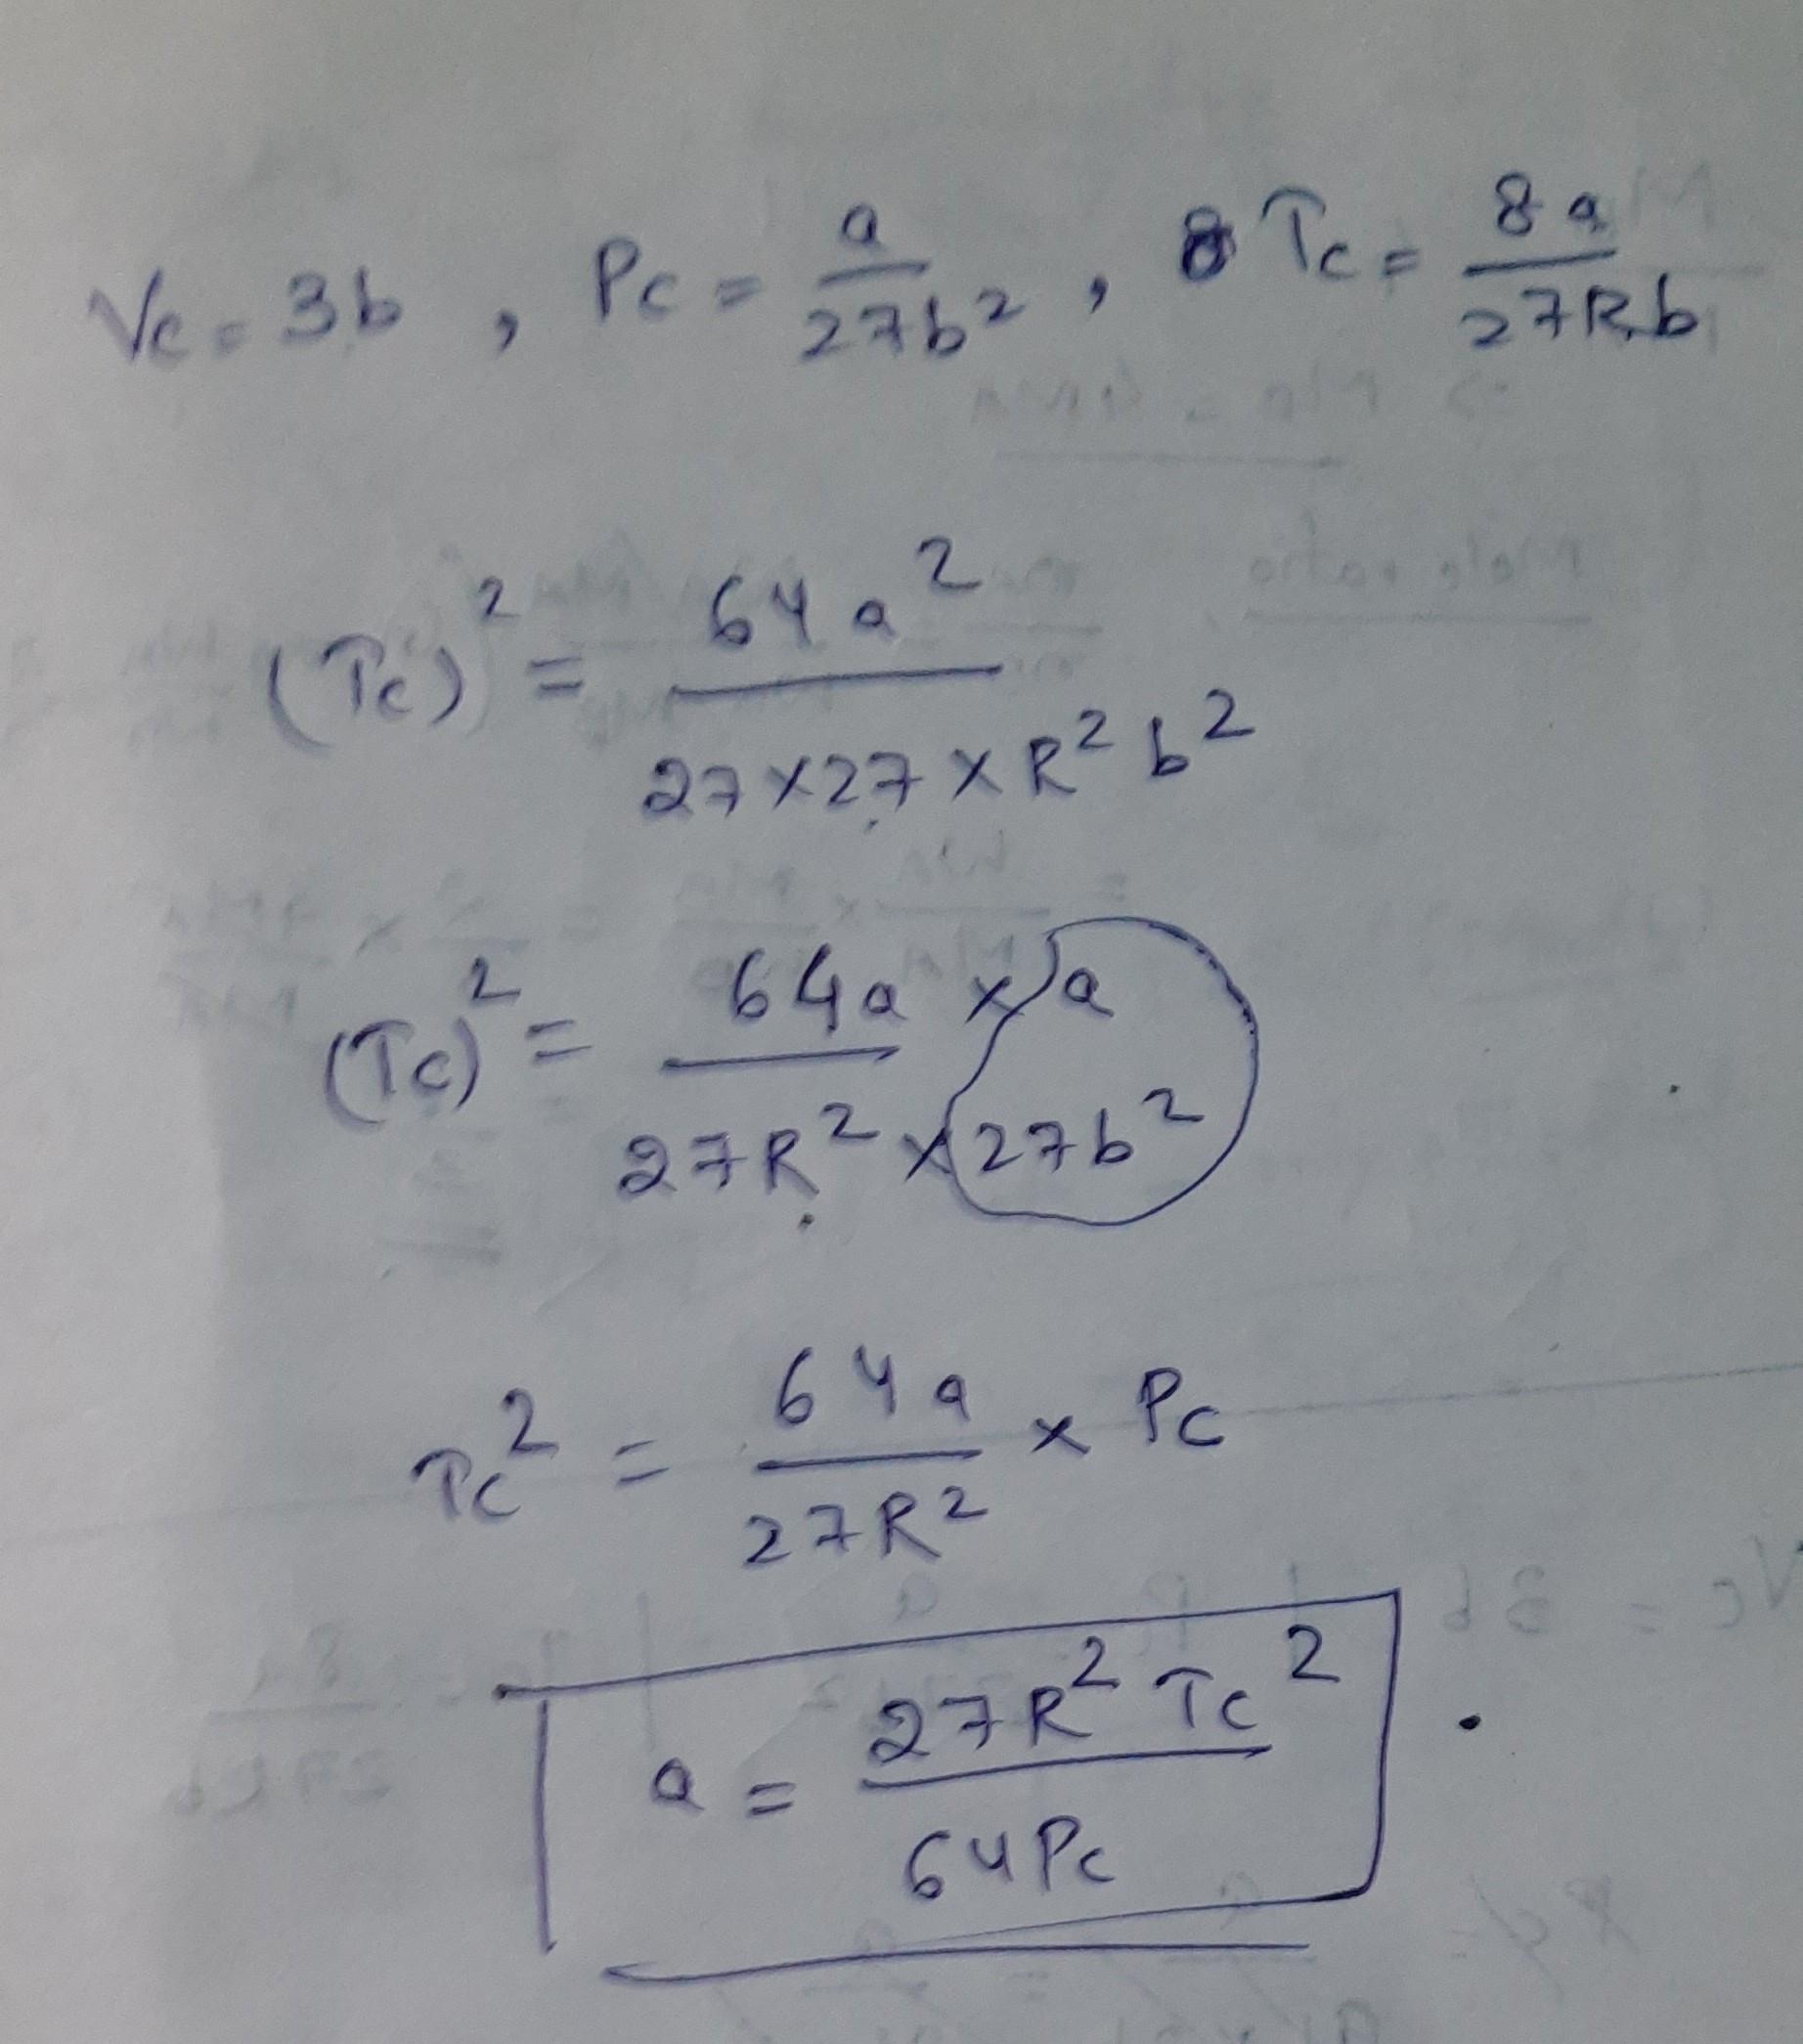 Vc = 3b , Pc = a/27b² , Tc = 8a/27Rb
(Tc)² = 64a²/27×27×R²b²
(Tc)² = 64a × a/27R² × 27b²
Tc² = 64a/27R² × Pc
a = 27R²Tc²/64Pc